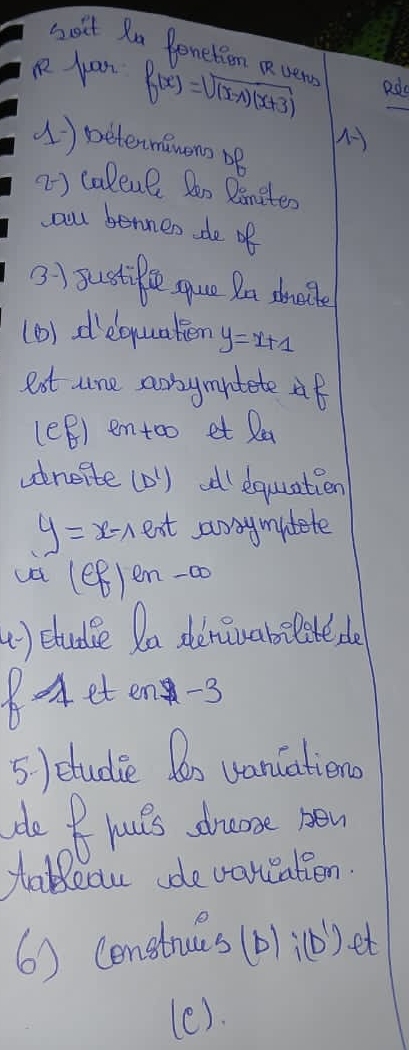 soit la fonction R vers
R par: f(x) = √(x-1)(x+3)
1-) Déterminons Df
2-) Calcule les limites
au bornes de Df
3-) Justifie que la droite
(D) d'équation y = x+1
est une assymptote à f
(Cf) en +∞ et la
droite (D') d'équation
y = x-1 est assymptote
à (Cf) en -∞
4-) Etudie la dérivabilité de
f 1 et en -3
5-) Etudie les variations
de f puis dresse son
tableau de variation.
6) Construis (D) ; (D') et
(C).
1-)